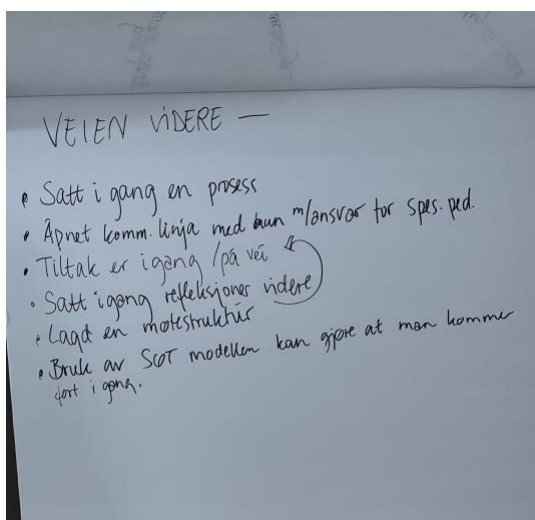 VEIEN VIDERE —
• Satt i gang en prosess
• Åpnet komm. linja med hun m/ansvar for spes. ped.
• Tiltak er igang / på vei
• Satt igang refleksjoner videre
• Lagd en møtestruktur
• Bruk av SCOT modellen kan gjøre at man kommer
fort i gang.